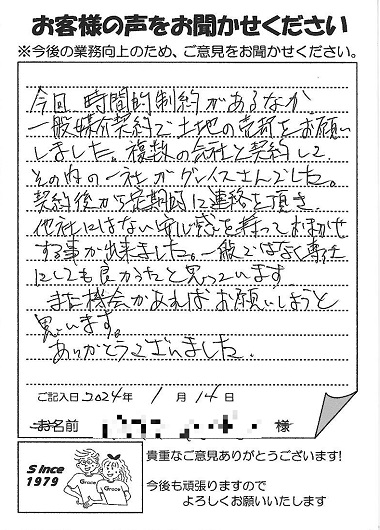 お客様の声をお聞かせください
※今後の業務向上のため、ご意見をお聞かせください。
今回、時間的制約があるなか
一般媒介契約で土地の売却をお願い
しました。複数の会社と契約して
その内の一社がグレイスさんでした。
契約後から定期的に連絡を頂き
他社にはない安心感を持っておまかせ
する事が出来ました。一般ではなく専任
にしても良かったと思っています
また機会があればお願いしようと
思います。
ありがとうございました。
ご記入日 2024年 1月 14日
お名前 様
Since
1979
Grace
Grace
貴重なご意見ありがとうございます!
今後も頑張りますので
よろしくお願いいたします